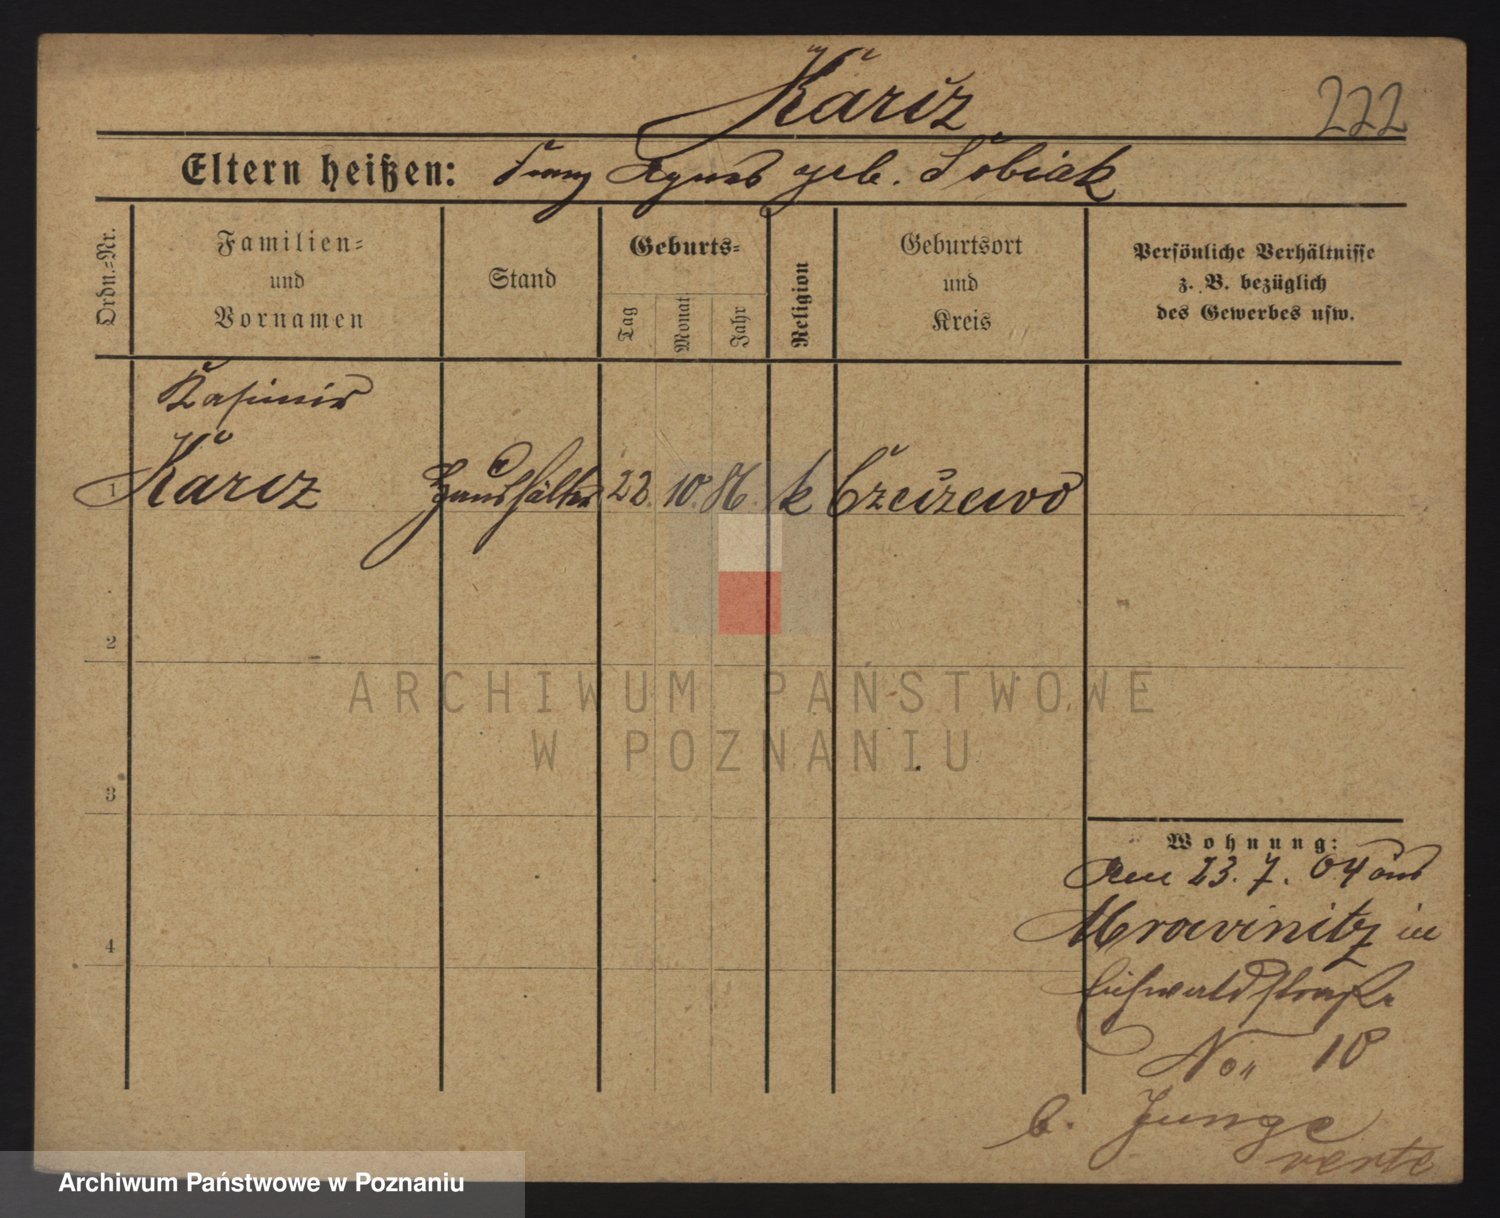 Karcz
222
Eltern heißen: Franz Agnes geb. Sobiak
Ordn.=Nr.
Familien=
und
Vornamen
Stand
Geburts=
Tag
Monat
Jahr
Religion
Geburtsort
und
Kreis
Persönliche Verhältnisse
z. B. bezüglich
des Gewerbes usw.
Kasimir
1 Karcz Haushälter 22. 10. 86. k
2
3
4
Wohnung:
Am 23. 7. 04 aus
in
Eichwaldstraße
No. 10
b. Junge
verte
ARCHIWUM PAŃSTWOWE
W POZNANIU
Archiwum Państwowe w Poznaniu